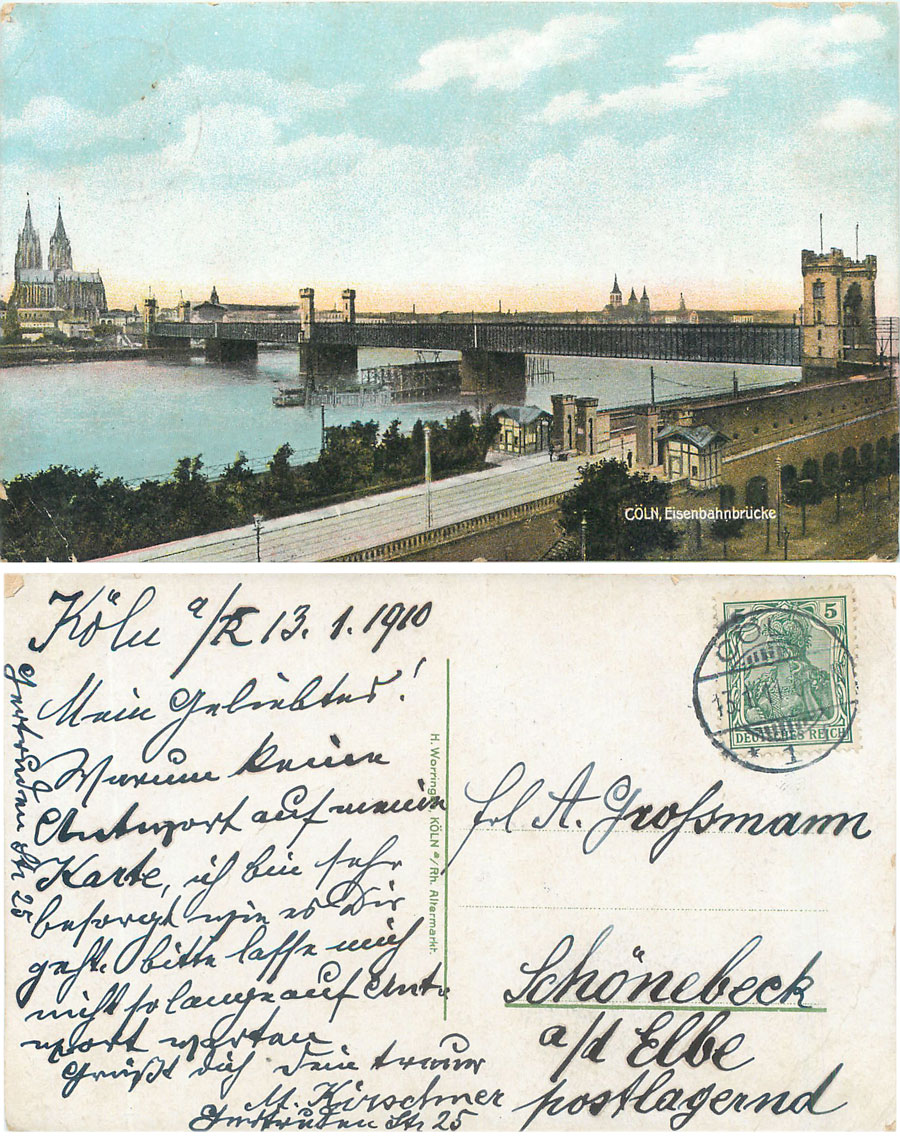 CÖLN, Eisenbahnbrücke
Köln a/R 13. 1. 1910
Mein Geliebtes!
Warum keine
Antwort auf meine
Karte, ich bin sehr
besorgt wie es Dir
geht. bitte lasse mich
nicht so lange auf Ant-
wort warten
Grüßt dich Dein treuer
M. Kirschner
Gertruden Str 25
Gertruden Str 25
H. Worring, KÖLN a/Rh. Altermarkt.
5 5
DEUTSCHES REICH
CÖLN
1
frl A. Grossmann
Schönebeck
a/d Elbe
postlagernd